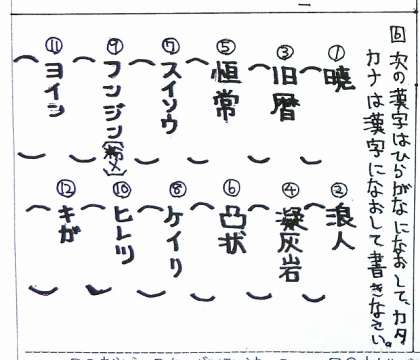 次の漢字はひらがなになおして、カタ
カナは漢字になおして書きなさい。
①暁
②浪人
③旧暦
④凝灰岩
⑤恒常
⑥凸状
⑦スイソウ
⑧ケイリ
⑨フンジン
⑩ヒレツ
⑪ヨイン
⑫キガ